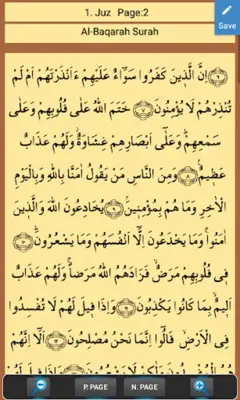 1. Juz Page:2
Save
Al-Baqarah Surah
اِنَّ الَّذٖينَ كَفَرُوا سَوَٓاءٌ عَلَيْهِمْ ءَاَنْذَرْتَهُمْ اَمْ لَمْ
تُنْذِرْهُمْ لَا يُؤْمِنُونَ خَتَمَ اللّٰهُ عَلٰى قُلُوبِهِمْ وَعَلٰى
سَمْعِهِمْ وَعَلٰٓى اَبْصَارِهِمْ غِشَاوَةٌ وَلَهُمْ عَذَابٌ
عَظٖيمٌ وَمِنَ النَّاسِ مَنْ يَقُولُ اٰمَنَّا بِاللّٰهِ وَبِالْيَوْمِ
الْاٰخِرِ وَمَا هُمْ بِمُؤْمِنٖينَ يُخَادِعُونَ اللّٰهَ وَالَّذٖينَ
اٰمَنُوا وَمَا يَخْدَعُونَ اِلَّٓا اَنْفُسَهُمْ وَمَا يَشْعُرُونَ
فٖى قُلُوبِهِمْ مَرَضٌ فَزَادَهُمُ اللّٰهُ مَرَضًا وَلَهُمْ عَذَابٌ
اَلٖيمٌ بِمَا كَانُوا يَكْذِبُونَ وَاِذَا قٖيلَ لَهُمْ لَا تُفْسِدُوا
فِى الْاَرْضِ قَالُٓوا اِنَّمَا نَحْنُ مُصْلِحُونَ اَلَٓا اِنَّهُمْ
P.PAGE
N. PAGE